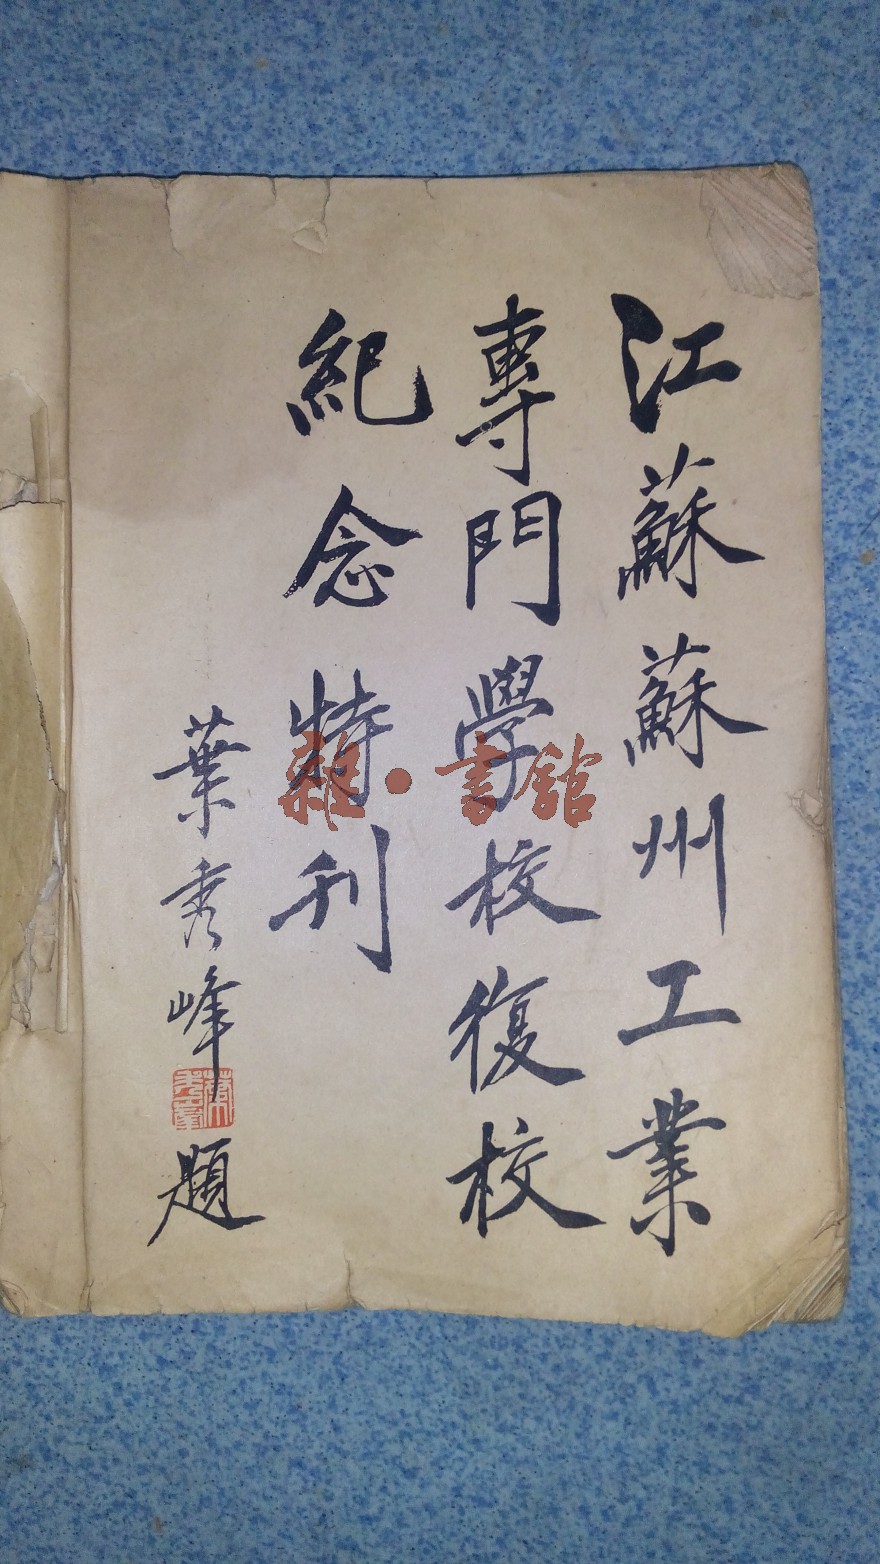 江蘇蘇州工業
專門學校復校
紀念特刊
葉秀峰題
葉秀峯
雜·書館